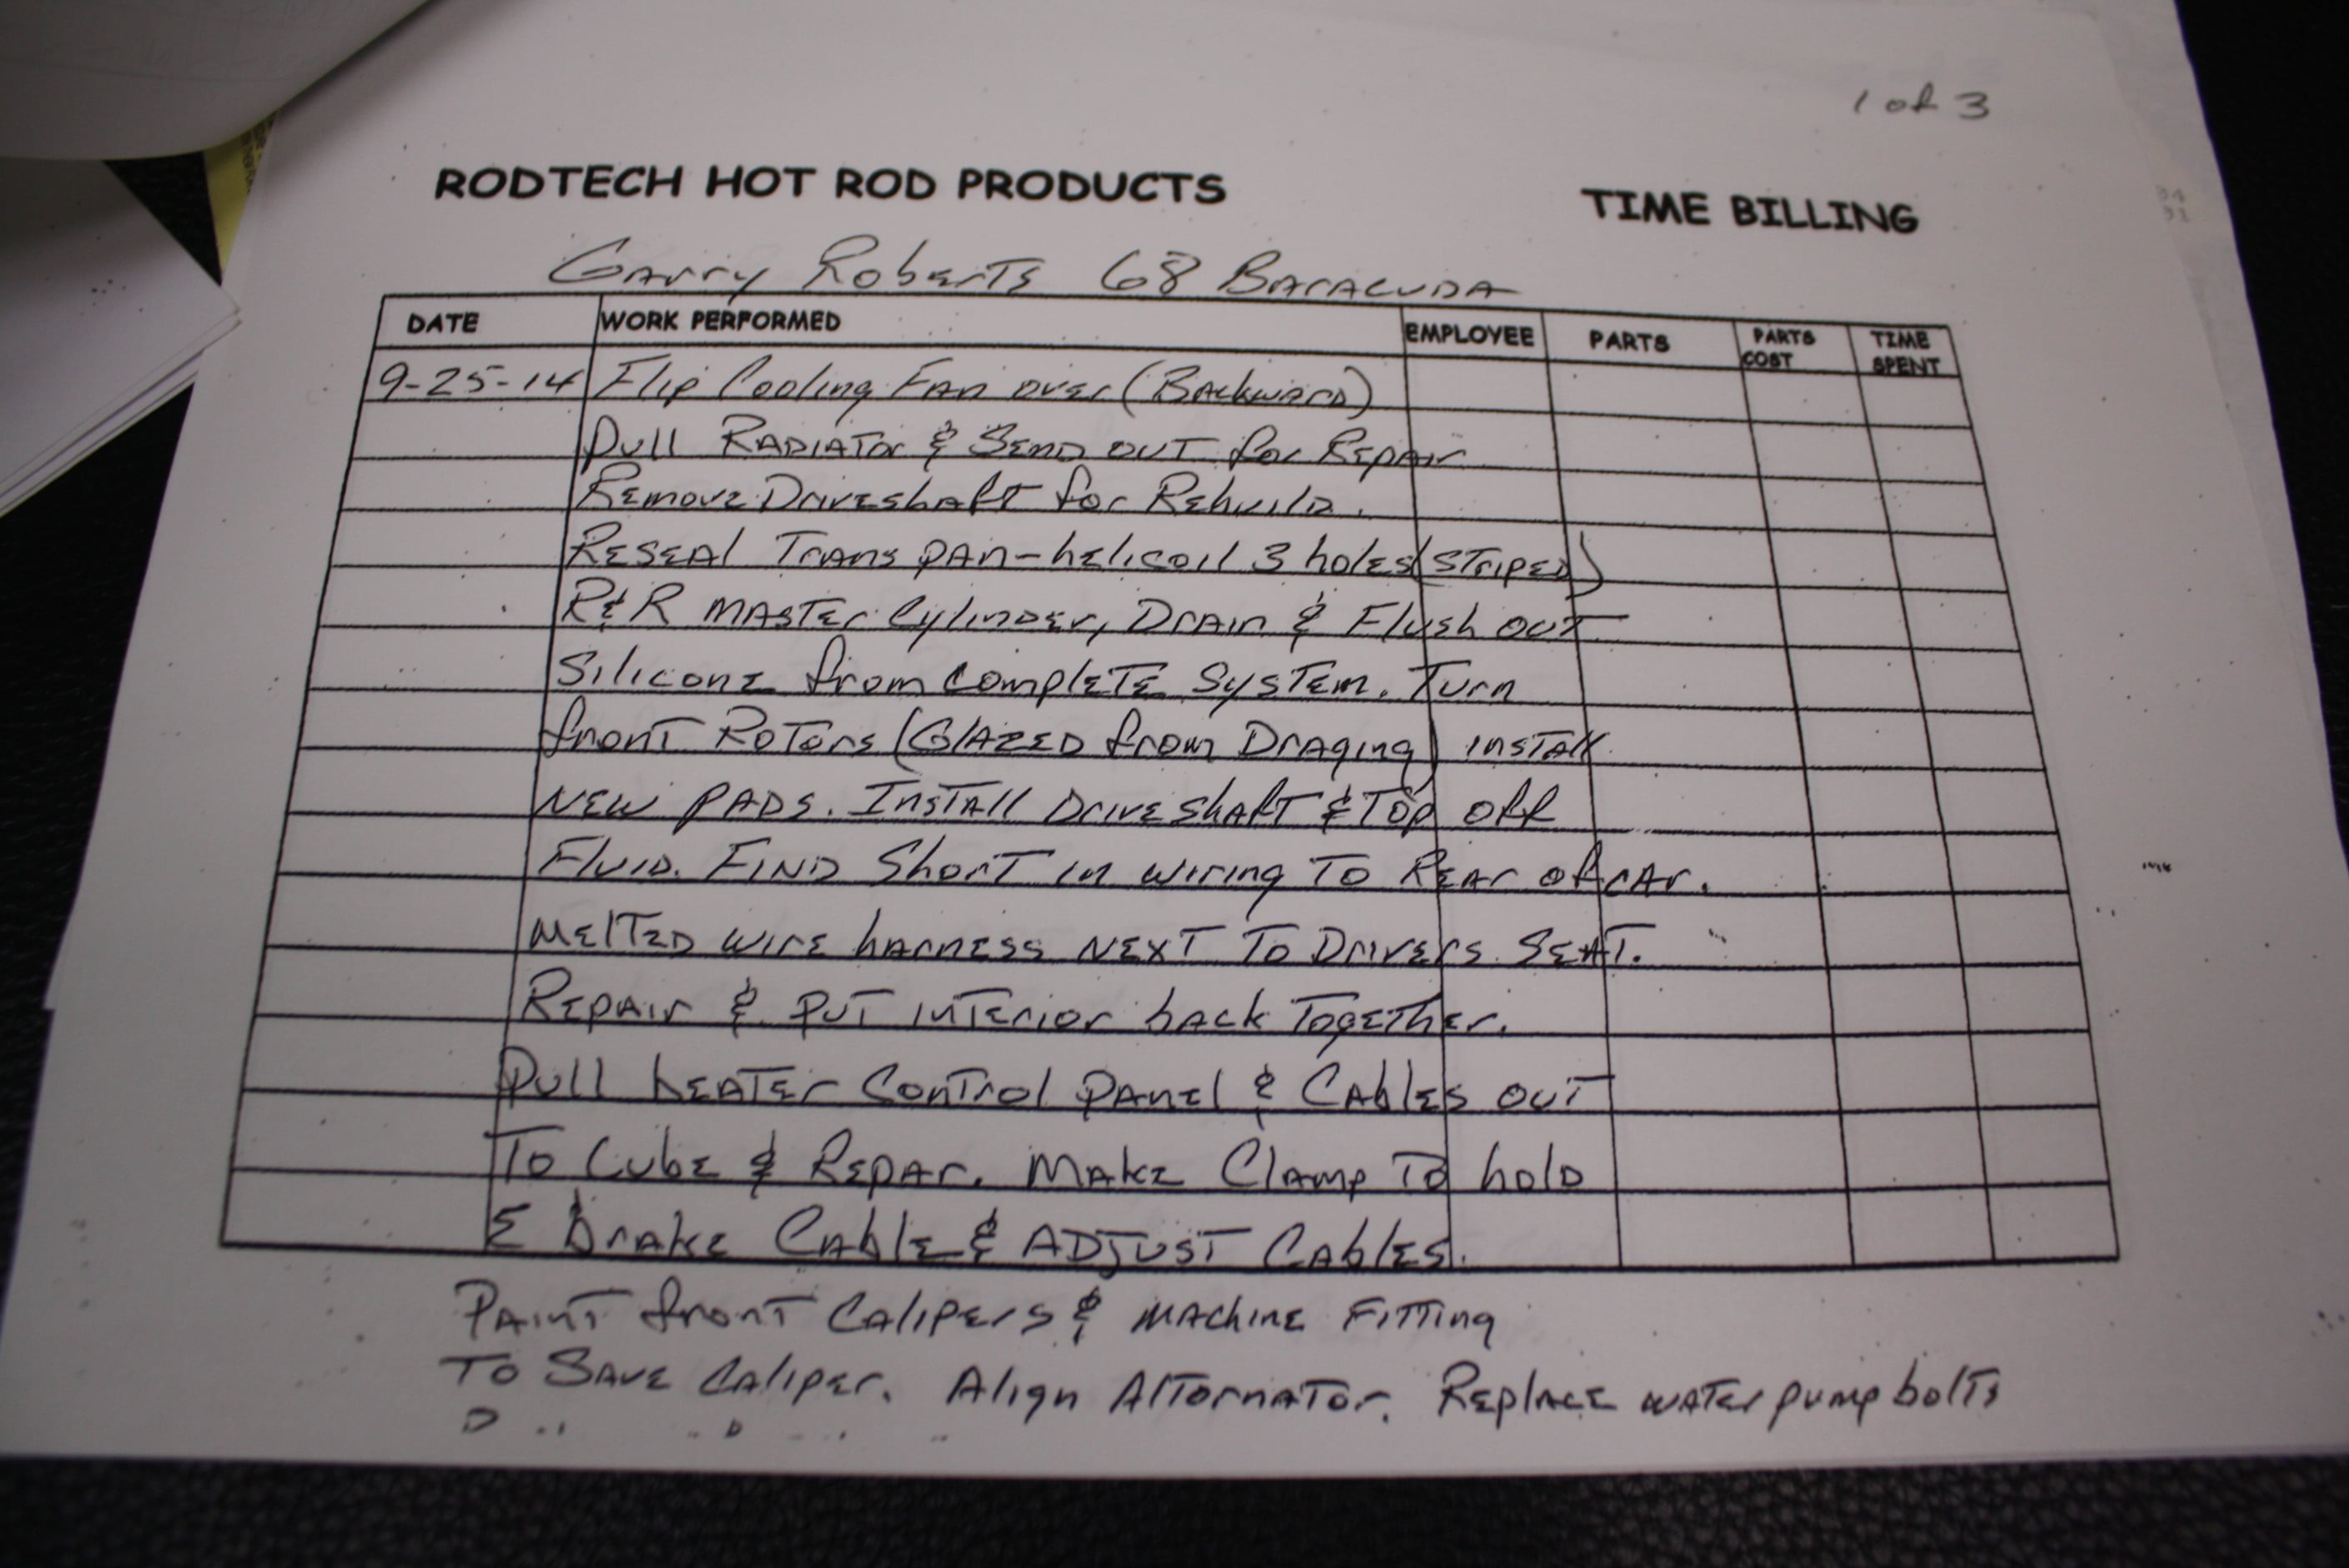 1 of 3
RODTECH HOT ROD PRODUCTS TIME BILLING
Garry Roberts 68 Baracuda
DATE WORK PERFORMED EMPLOYEE PARTS PARTS COST TIME SPENT
9-25-14 Flip Cooling Fan over (Backward)
Pull Radiator & Send out for Repair
Remove Driveshaft for Rebuild.
Reseal Trans pan-helicoil 3 holes (striped)
R&R Master Cylinder, Drain & Flush out
Silicone from complete system. Turn
front Rotors (Glazed from Draging) install
New pads. Install Driveshaft & Top off
Fluid. Find Short in wiring To Rear of car.
Melted wire harness next To Drivers Seat.
Repair & put interior back Together.
Pull heater Control Panel & Cables out
To Lube & Repar. Make Clamp To hold
E Brake Cable & Adjust Cables.
Paint front Calipers & machine Fitting
To Save Caliper. Align Alternator. Replace water pump bolts